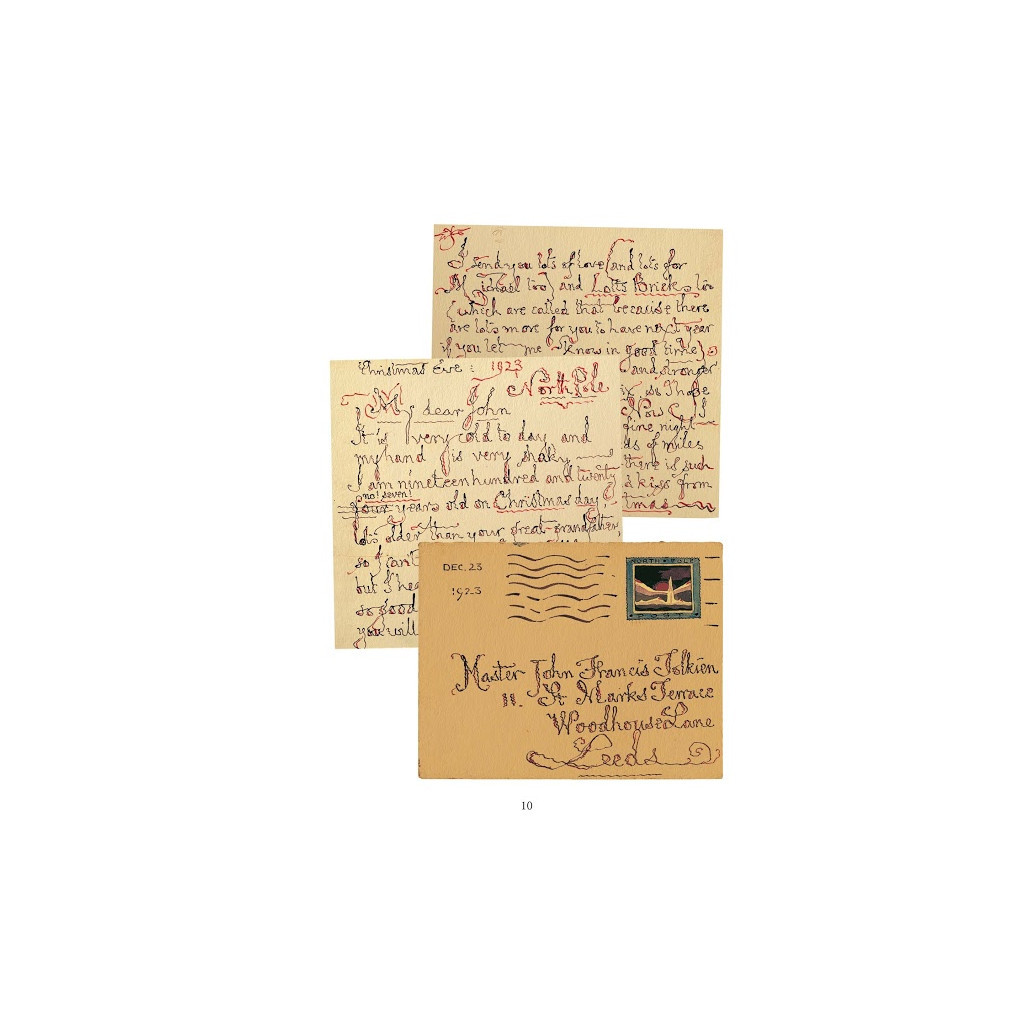 I send you lots of love (and lots for
Michael too) and Lotts Bricks too
(which are called that because there
are lots more for you to have next year
if you let me know in good time)
and stronger
so I hope
Now I
fine night
ds of miles
there is such
a kiss from
tmas
Christmas Eve: 1923
North Pole
My dear John
It is very cold to day and
my hand is very shaky
I am nineteen hundred and twenty
no! seven!
four years old on Christmas day,
lots older than your great-grandfather,
so I can't
but I hea
so good
you will
DEC. 23
1923
NORTH POLE
Master John Francis Tolkien
11. St Marks Terrace
Woodhouse Lane
Leeds
10